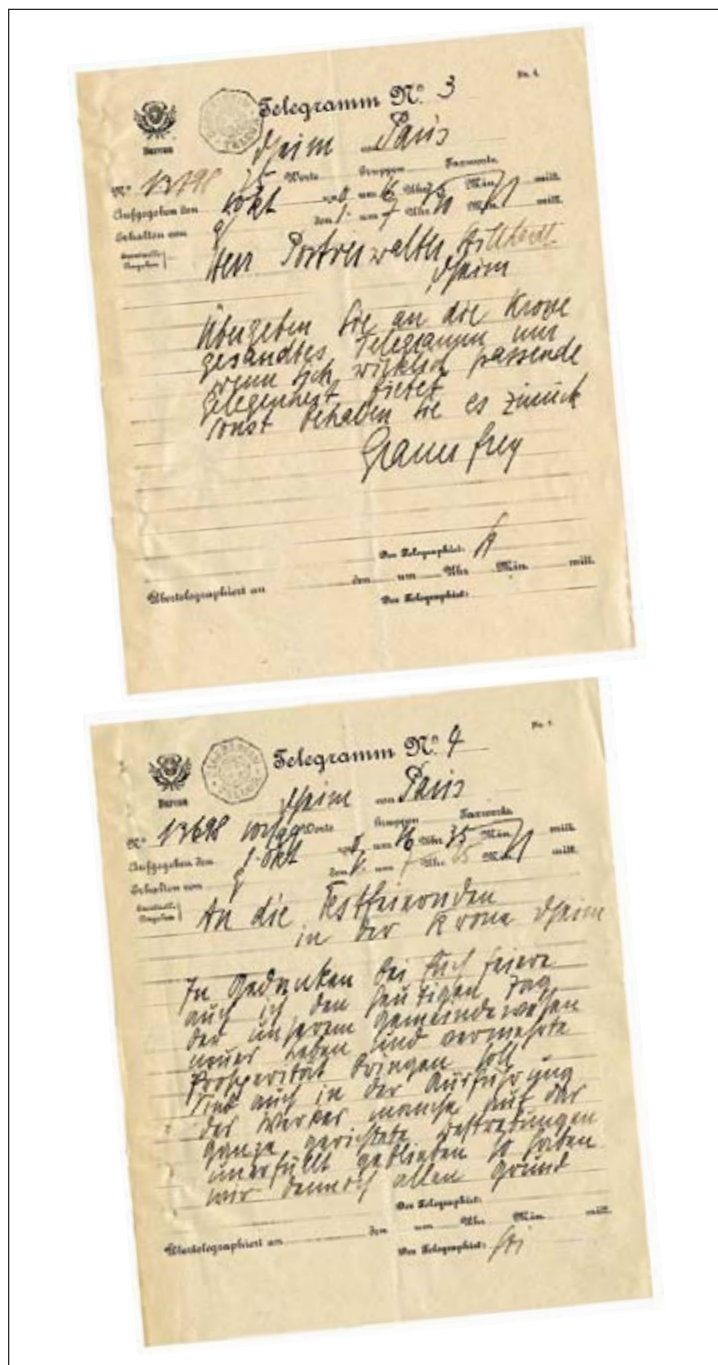 No. 4.
Telegramm No. 3
Bureau
dheim von Paris
No. Worte Gruppen Taxworte
Aufgegeben den um 6 Uhr Min. mitt.
Erhalten von den 1. um 7 Uhr Min. mitt.
Eventuelle Angaben
Herr Postverwalter
dheim
Übergeben Sie an die Krone
gesandtes Telegramm nur
wenn sich wirklich passende
Gelegenheit bietet
sonst behalten Sie es zurück
frey
Der Telegraphist:
Übertelegraphiert an den um Uhr Min. mitt.
Der Telegraphist:
Telegramm No. 4
Bureau
dheim von Paris
No. 13698 Worte Gruppen Taxworte
Aufgegeben den um 6 Uhr 35 Min. mitt.
Erhalten von den 1. um 7 Uhr Min. mitt.
Eventuelle Angaben
An die Festfeiernden
in der Krone dheim
In Gedanken bei Euch feiere
auch ich den heutigen Tag
der unserem Gemeindewesen
neues Leben und vermehrte
Prosperität bringen soll
Sind auch in der Ausführung
des Werkes manche auf das
ganze gerichtete Bestrebungen
unerfüllt geblieben so haben
wir dennoch allen Grund
Der Telegraphist:
Übertelegraphiert an den um Uhr Min. mitt.
Der Telegraphist: